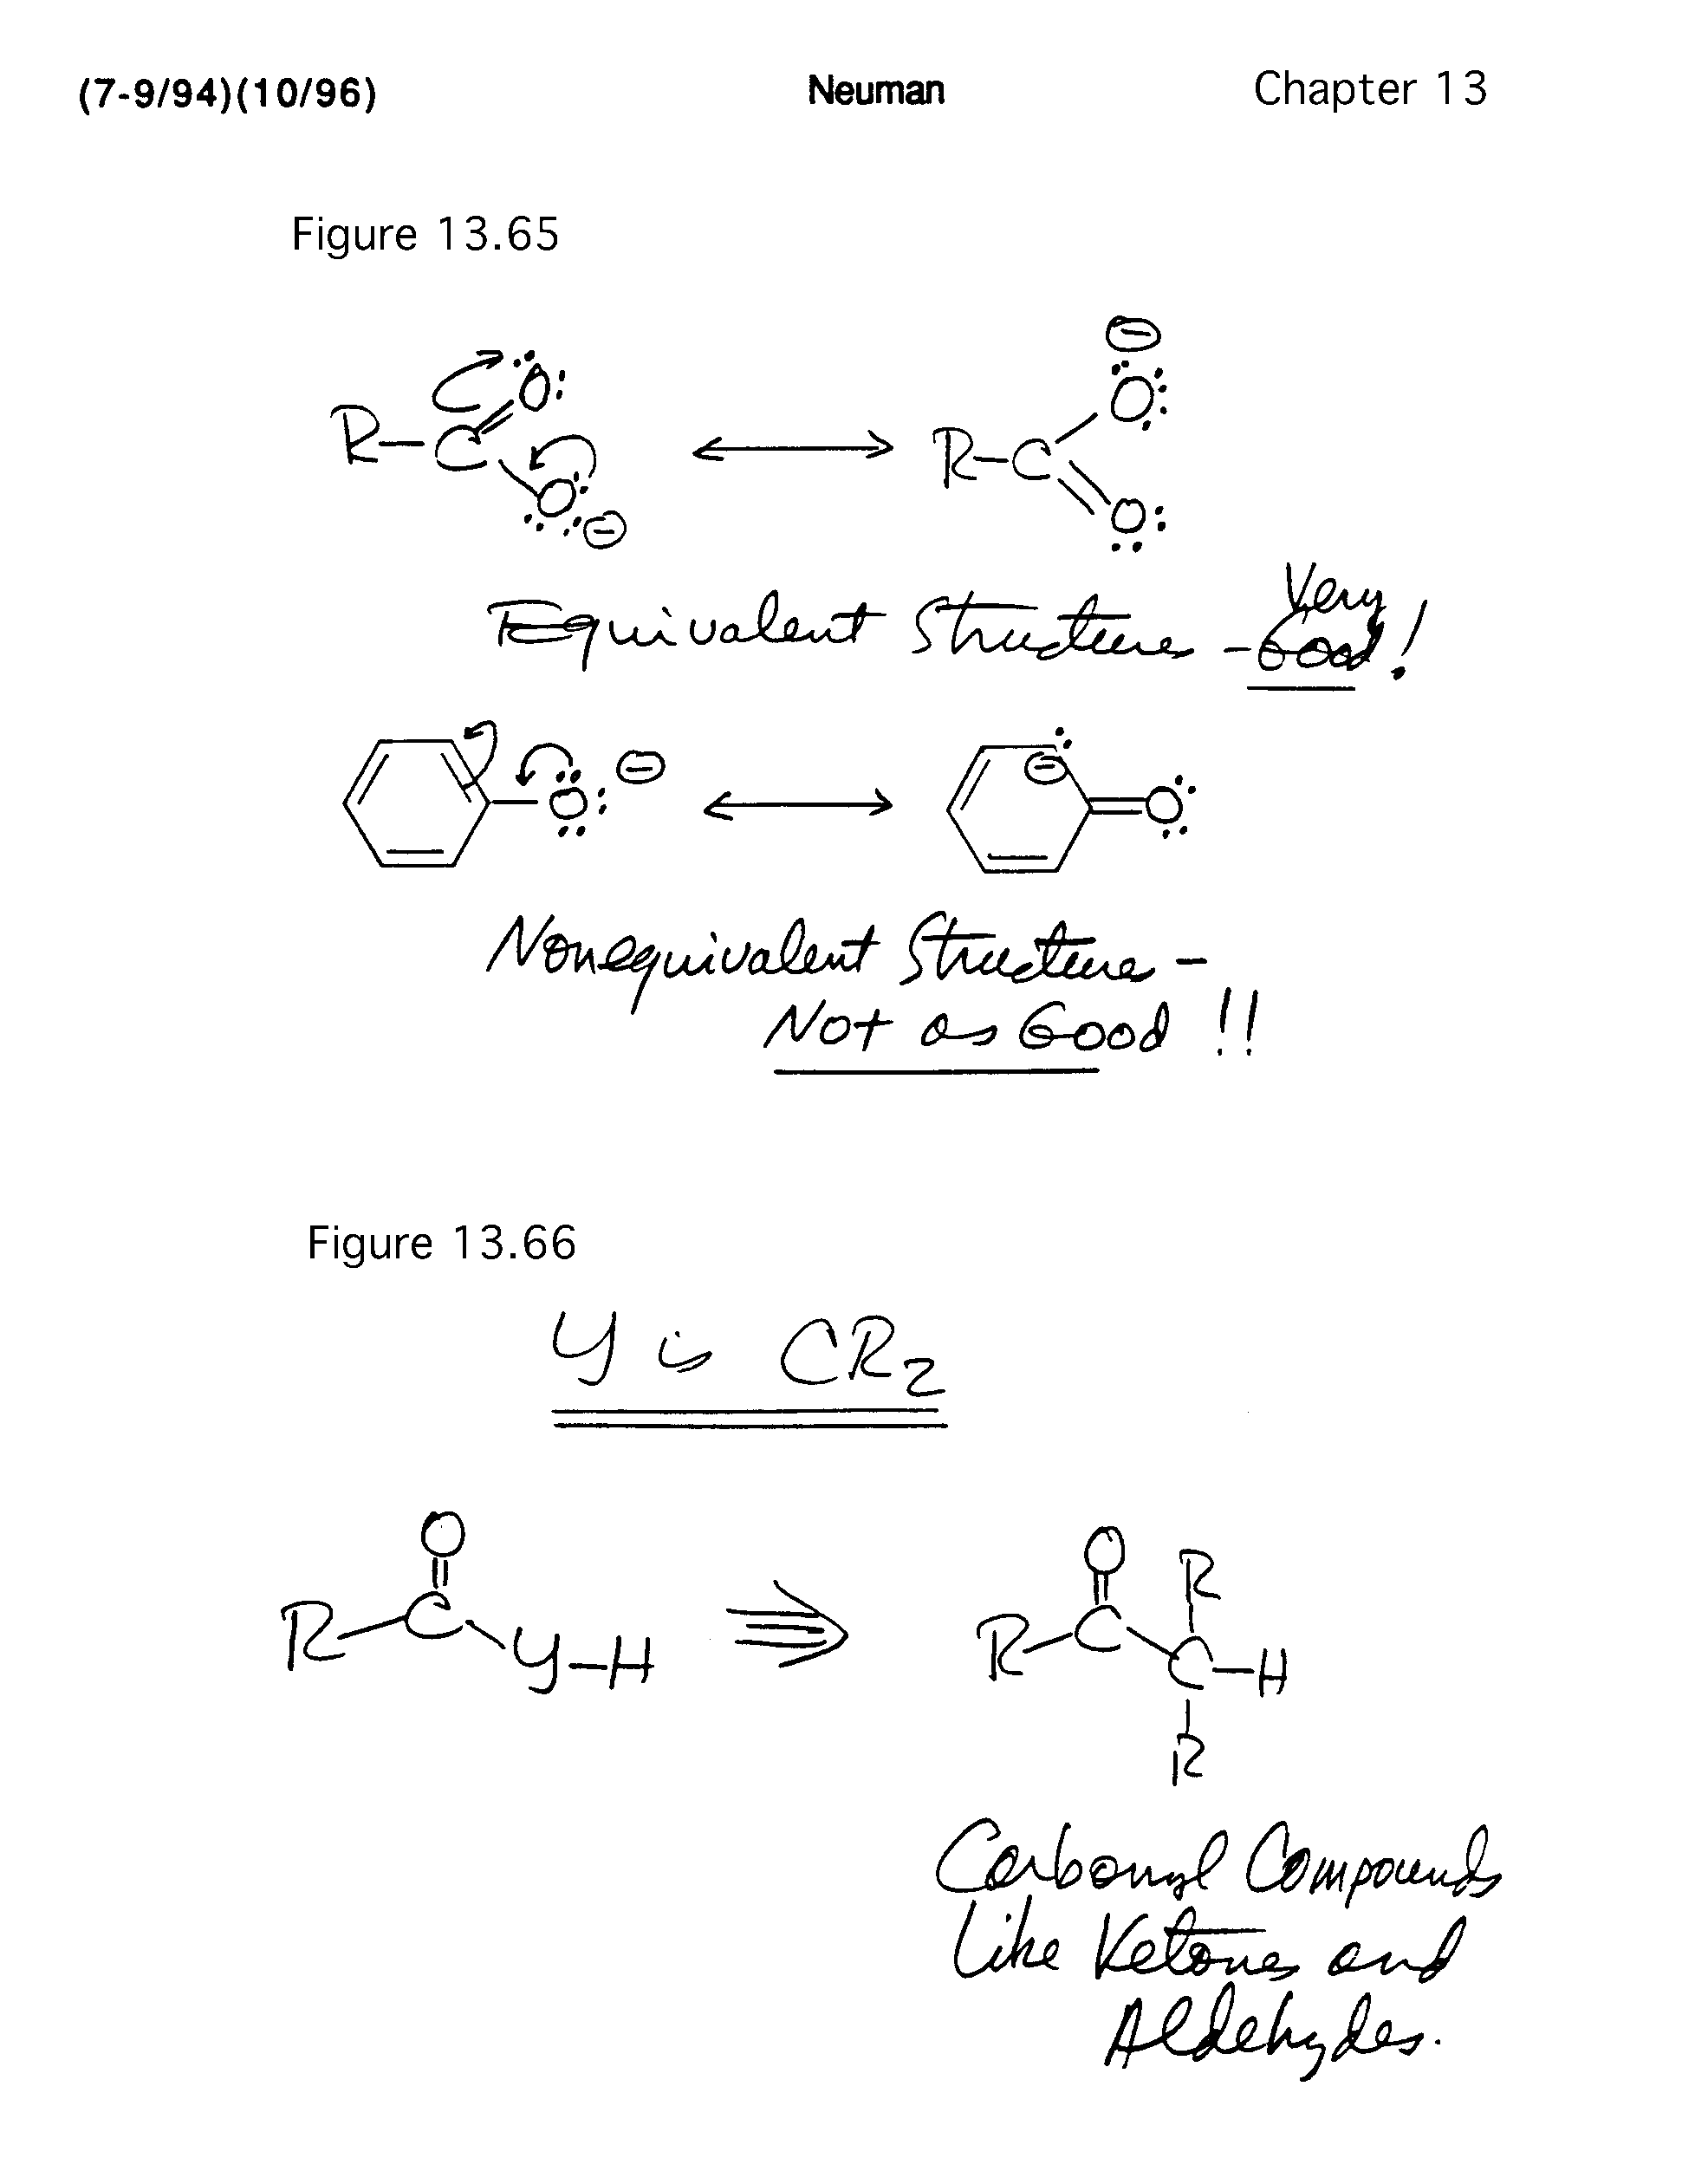 (7-9/94)(10/96) Neuman Chapter 13
Figure 13.65
R–C=O: O: ⊖ ⟷ R–C–O: ⊖ =O:
Equivalent Structures - Very Good!
O: ⊖ ⟷ ⊖ =O
Nonequivalent Structures -
Not as Good!!
Figure 13.66
Y is CR2
O O R
R C Y–H ⇒ R C C–H
R
Carbonyl Compounds
Like Ketones and
Aldehydes.